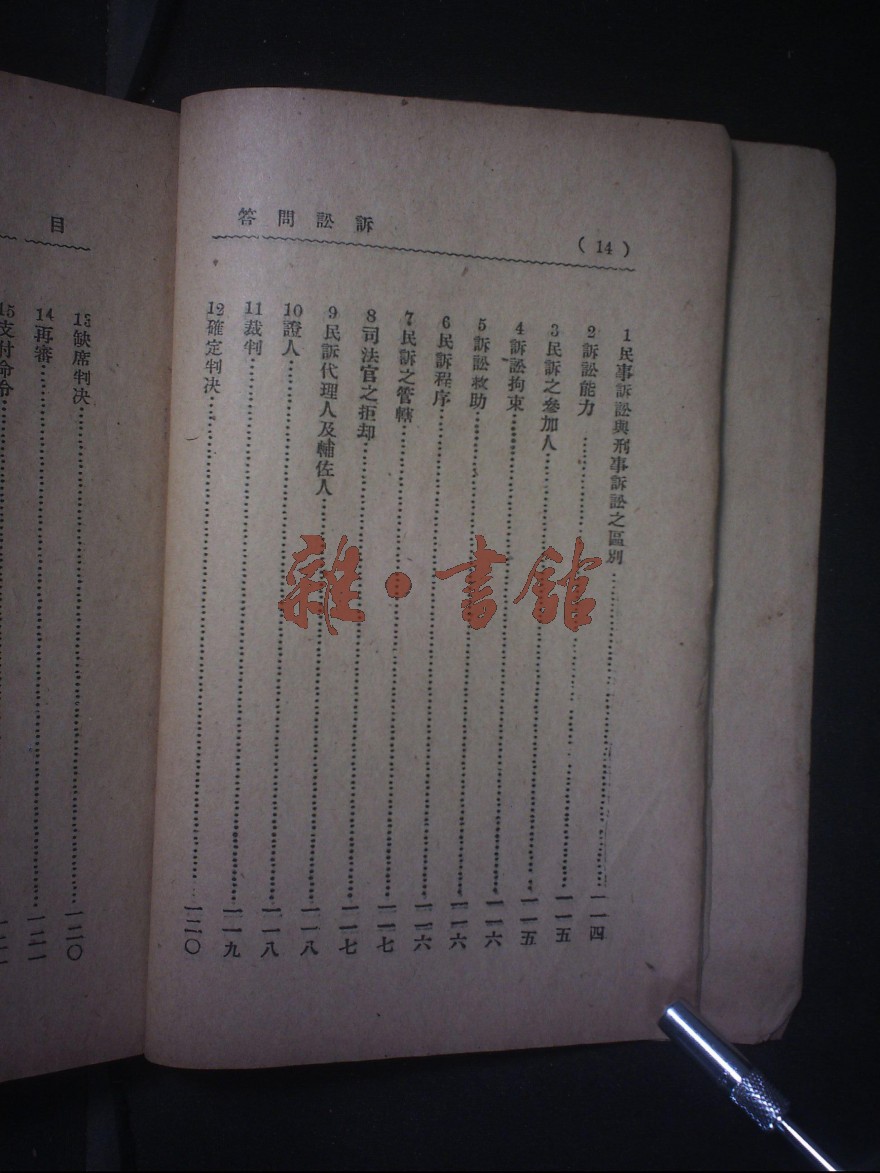 訴訟問答
(14)
1民事訴訟與刑事訴訟之區別……一一四
2訴訟能力……一一五
3民訴之參加人……一一五
4訴訟拘束……一一六
5訴訟救助……一一六
6民訴程序……一一六
7民訴之管轄……一一七
8司法官之拒却……一一七
9民訴代理人及輔佐人……一一八
10證人……一一八
11裁判……一一九
12確定判决……一二〇
目
13缺席判决……一二〇
14再審……一二一
15支付命令……
雜·書館